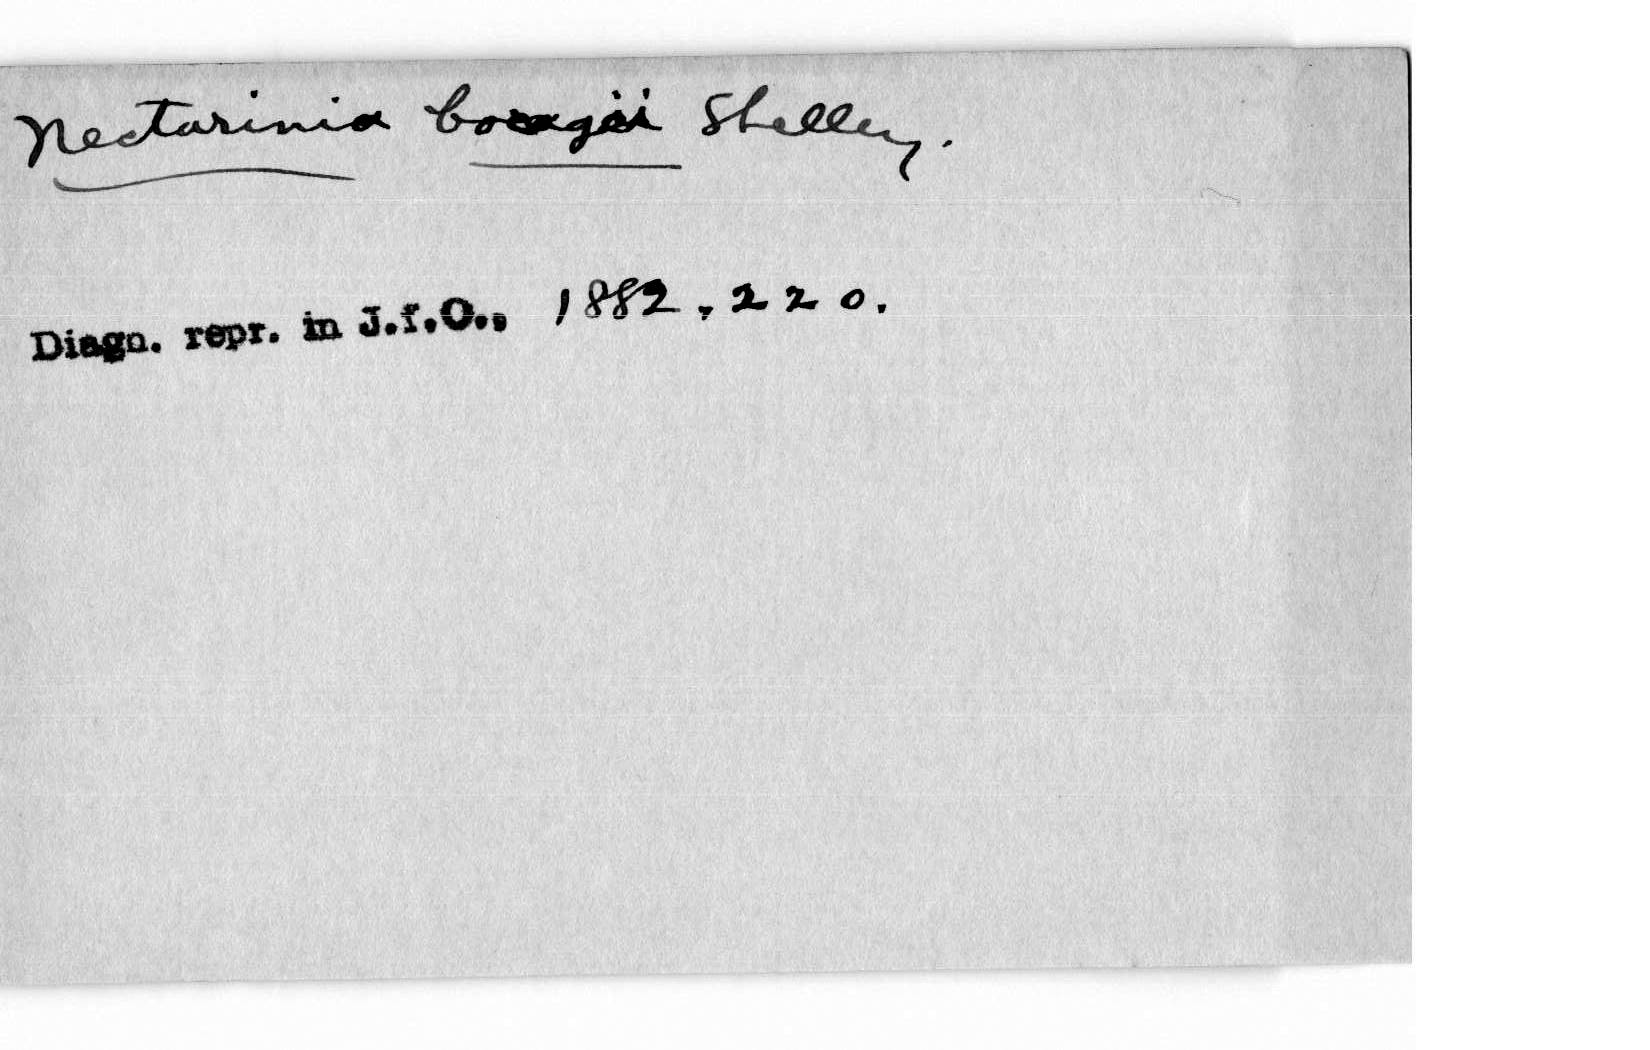 Nectarinia bocagii Shelley.
Diagn. repr. in J.f.O., 1882, 220.